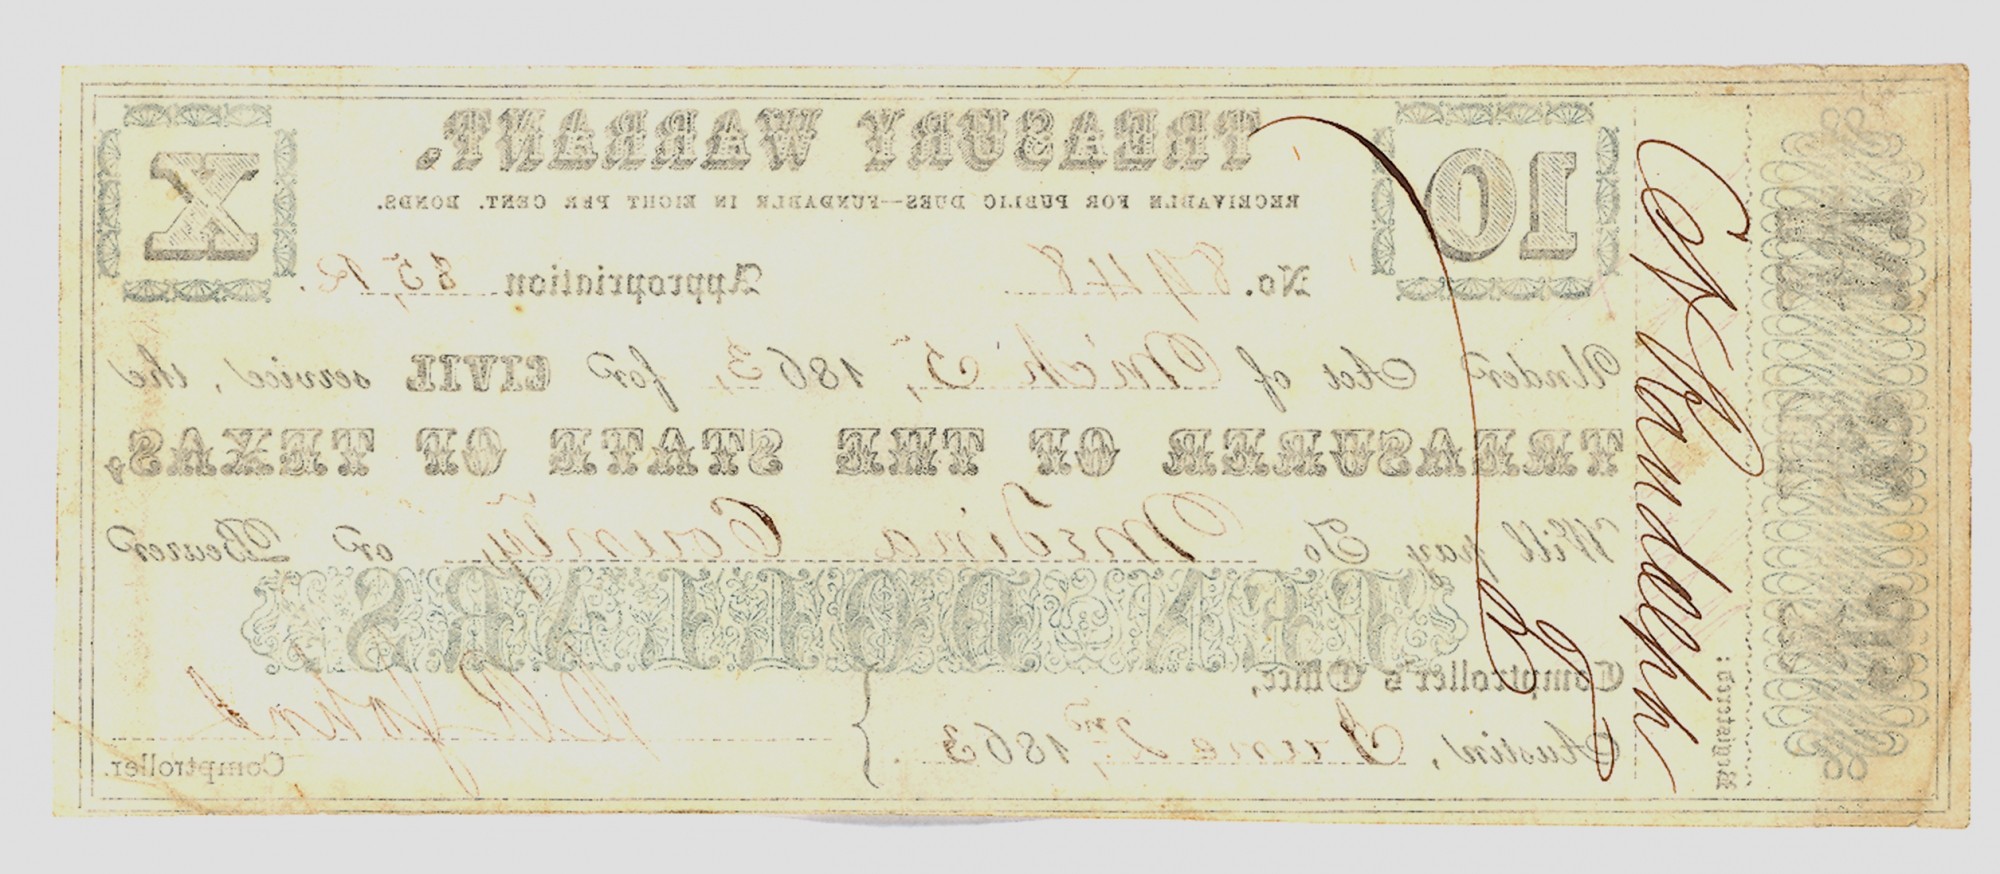 TREASURY WARRANT.
10
X
RECEIVABLE FOR PUBLIC DUES—FUNDABLE IN EIGHT PER CENT. BONDS.
No. 8948 Appropriation 85,12.
Under Act of M'ch 5, 1863, for CIVIL service, the
TREASURER OF THE STATE OF TEXAS,
Will pay To Medina County, or Bearer
TEN DOLLARS
Comptroller's Office,
Austin, June 2nd, 1863.
Comptroller.
Registered:
C H Randolph